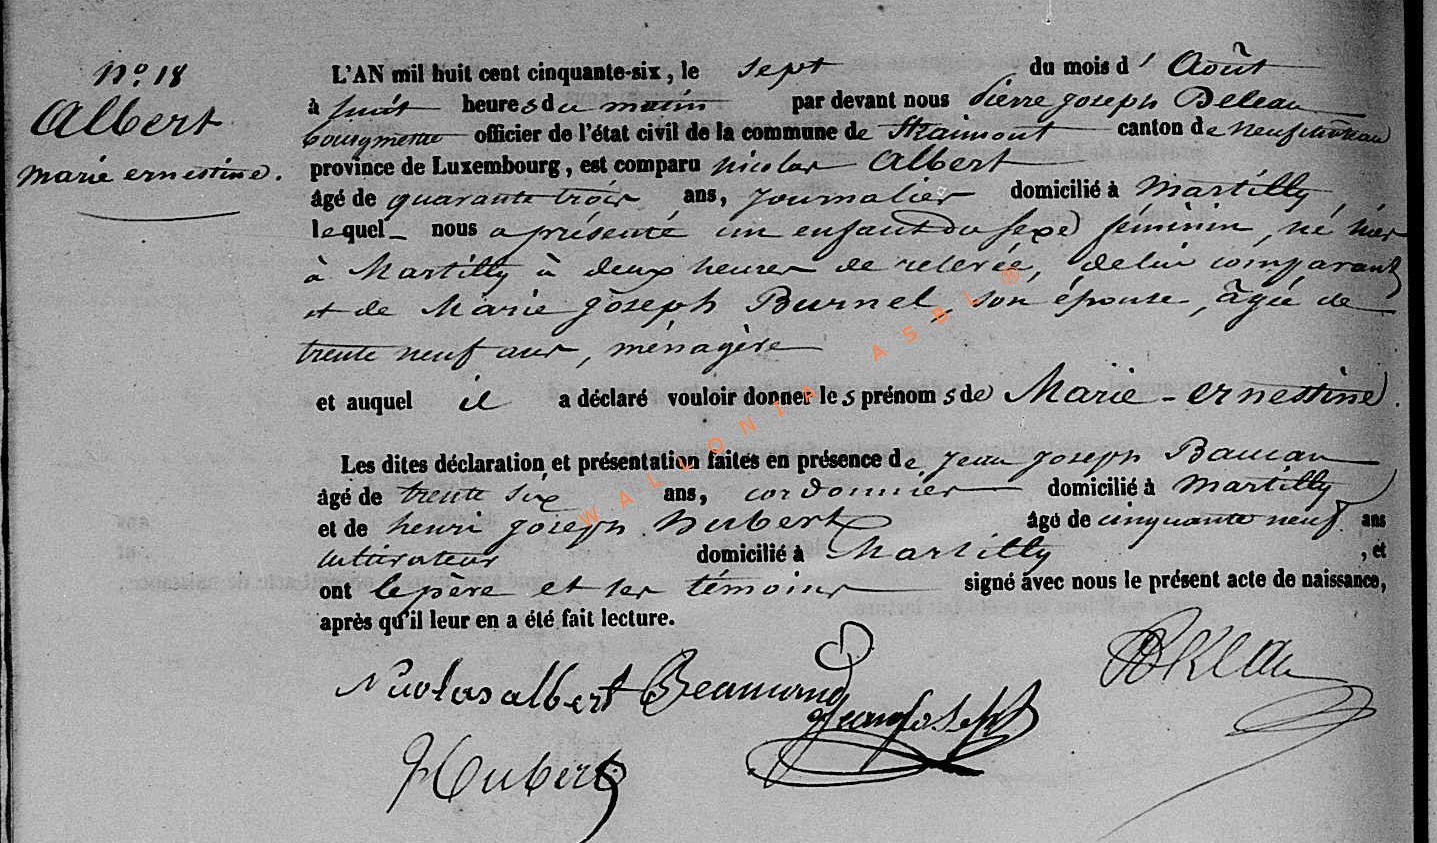 N° 18
Albert
marie ernestine.
L'AN mil huit cent cinquante-six, le sept du mois d' Août
à huit heures du matin par devant nous Pierre joseph Deleau
bourgmestre officier de l'état civil de la commune de Straimont canton de neufchateau
province de Luxembourg, est comparu nicolas Albert
âgé de quarante trois ans, journalier domicilié à Martilly,
lequel nous a présenté un enfant du sexe féminin, né hier
à Martilly à deux heures de relevée, de lui comparant
et de Marie joseph Burnel, son épouse, âgée de
trente neuf ans, ménagère
et auquel il a déclaré vouloir donner les prénoms de Marie-ernestine.
Les dites déclaration et présentation faites en présence de jean joseph
âgé de trente six ans, cordonnier domicilié à Martilly
et de henri joseph hubert âgé de cinquante neuf ans
cultivateur domicilié à Martilly, et
ont le père et les témoins signé avec nous le présent acte de naissance,
après qu'il leur en a été fait lecture.
Nicolas albert
jean joseph
Hubert
WALLONIA ASBL ®